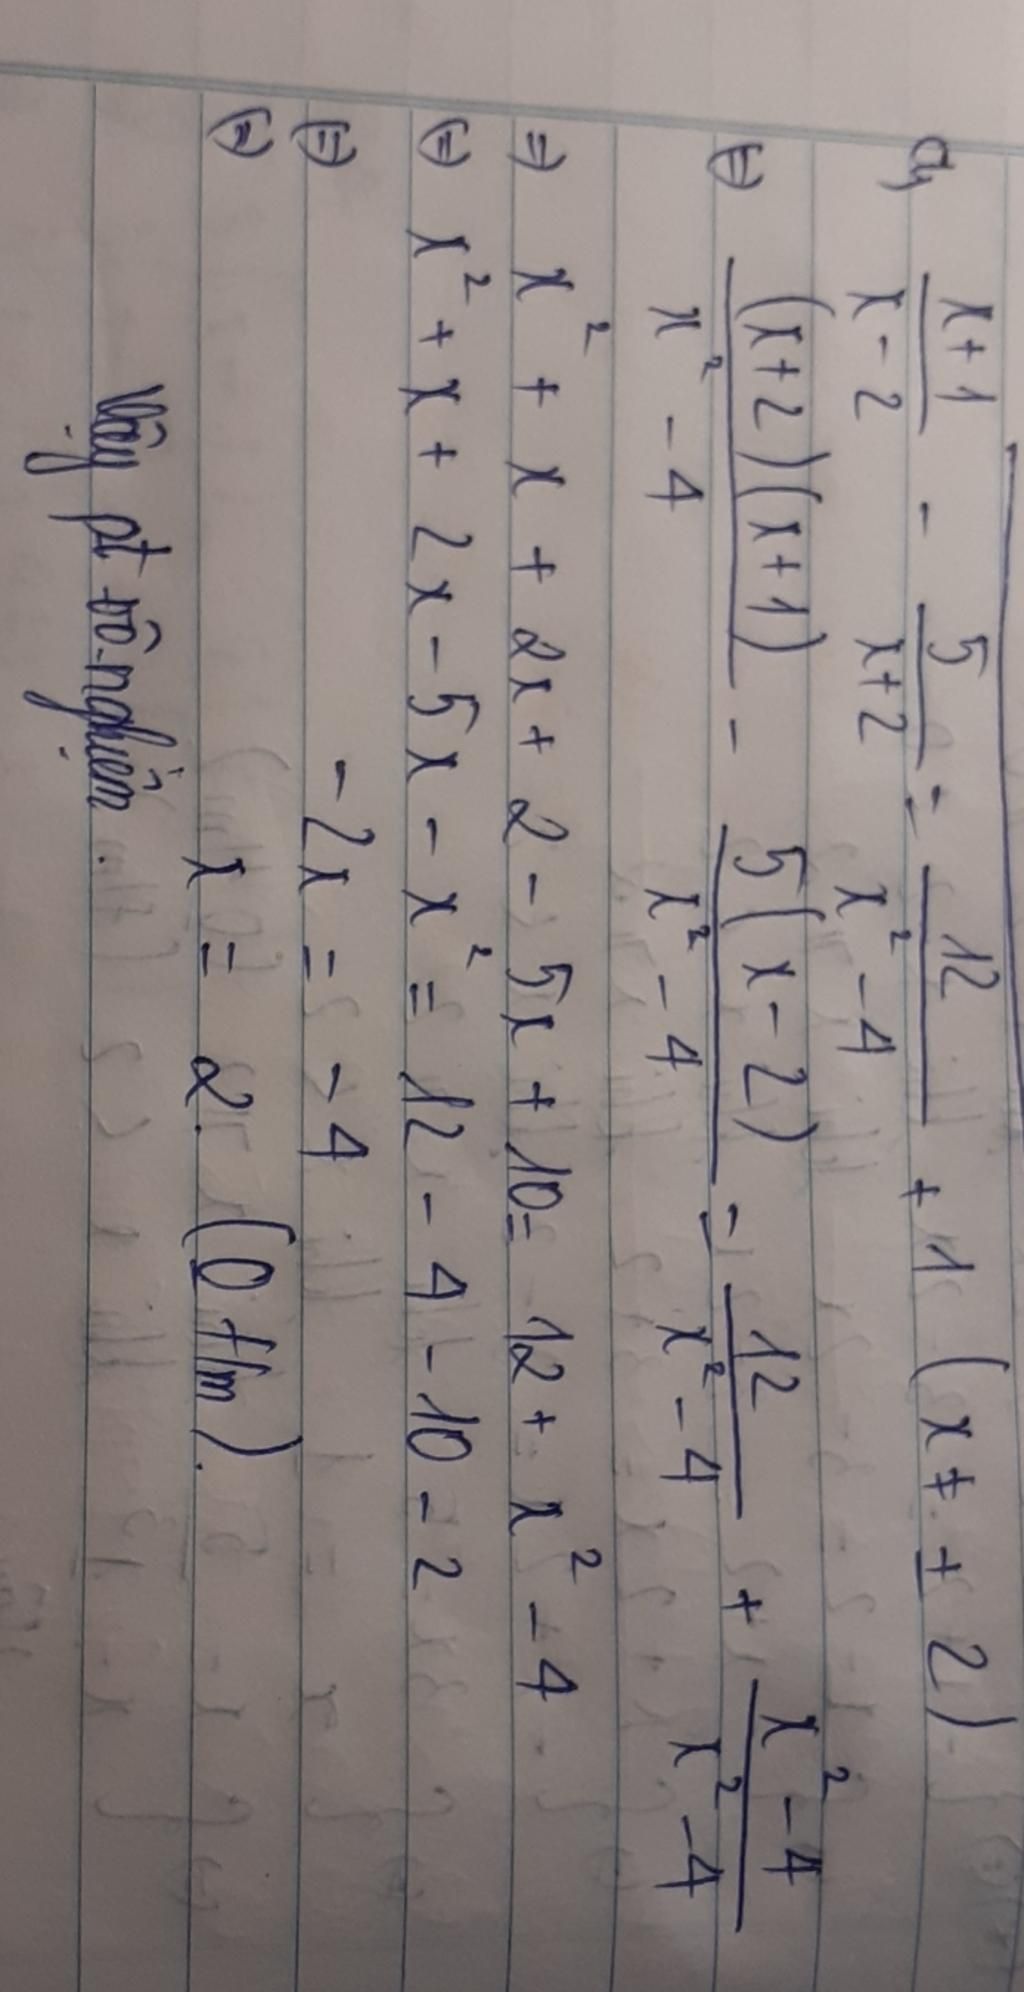 a, (x+1)/(x-2) - 5/(x+2) = 12/(x² - 4) + 1 (x ≠ ± 2)
⇔ (x+2)(x+1)/(x² - 4) - 5(x-2)/(x² - 4) = 12/(x² - 4) + (x² - 4)/(x² - 4)
⇒ x² + x + 2x + 2 - 5x + 10 = 12 + x² - 4
⇔ x² + x + 2x - 5x - x² = 12 - 4 - 10 - 2
⇔ -2x = -4
⇔ x = 2. (0 t/m).
Vậy pt vô nghiệm.